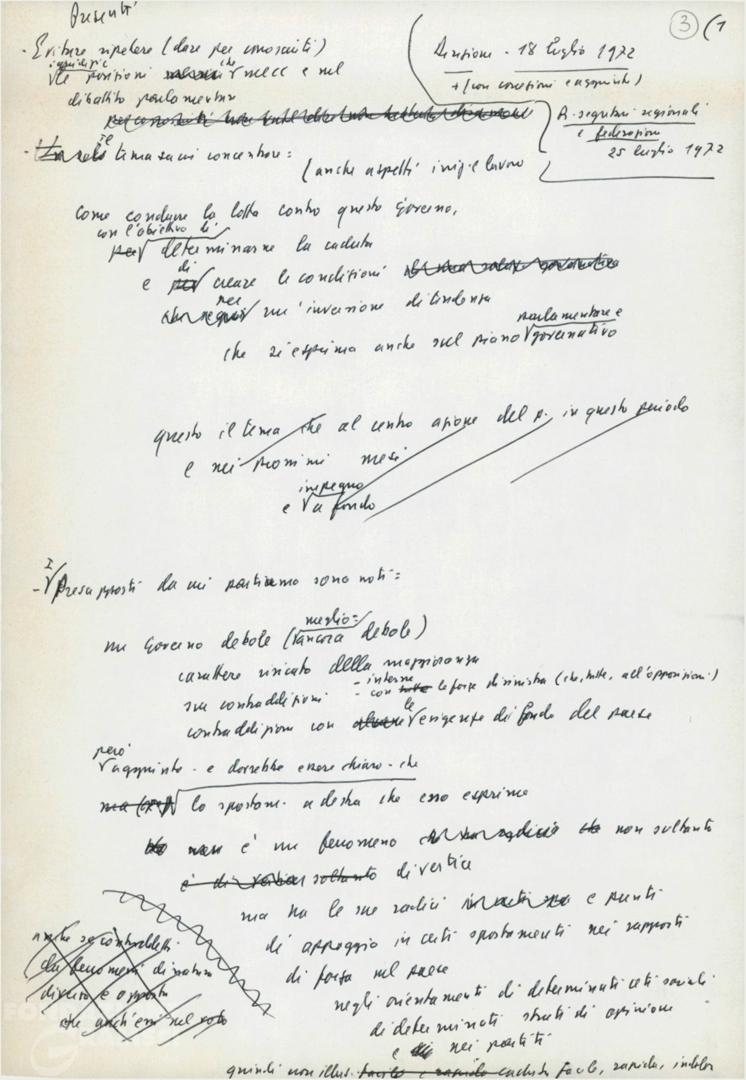 Presenti
3 (1
Direzione - 18 luglio 1972
+ (con correzioni e aggiunte)
R. segretari regionali
e federazioni
25 luglio 1972
- Evitare ripetere (dare per conosciuti)
le posizioni che MECC e nel
dibattito parlamentare
- tema su cui concentrare:
(anche aspetti lavoro
come condurre la lotta contro questo Governo,
con l'obiettivo di
determinarne la caduta
e di creare le condizioni
per un'inversione di tendenza
che si esprima anche sul piano parlamentare e
governativo
questo il tema che al centro azione del p. in questo periodo
e nei prossimi mesi
impegno
e a fondo
- I presupposti da cui partiamo sono noti:
un Governo debole (meglio: ancora debole)
carattere risicato della maggioranza
sue contraddizioni - interne
- con le forze di sinistra (che, tutte, all'opposizione!)
contraddizioni con le esigenze di fondo del paese
però
aggiunto - e dovrebbe essere chiaro - che
lo spostam. a destra che esso esprime
è un fenomeno non soltanto
di vertice
ma ha le sue radici e punti
di appoggio in certi spostamenti nei rapporti
di forza nel paese
negli orientamenti di determinati ceti sociali
di determinati strati di opinione
e nei partiti
anche se contraddetti
da fenomeni di natura
diversa e opposta
anch'essi nel voto
quindi non illus. caduta facile, rapida, indolor